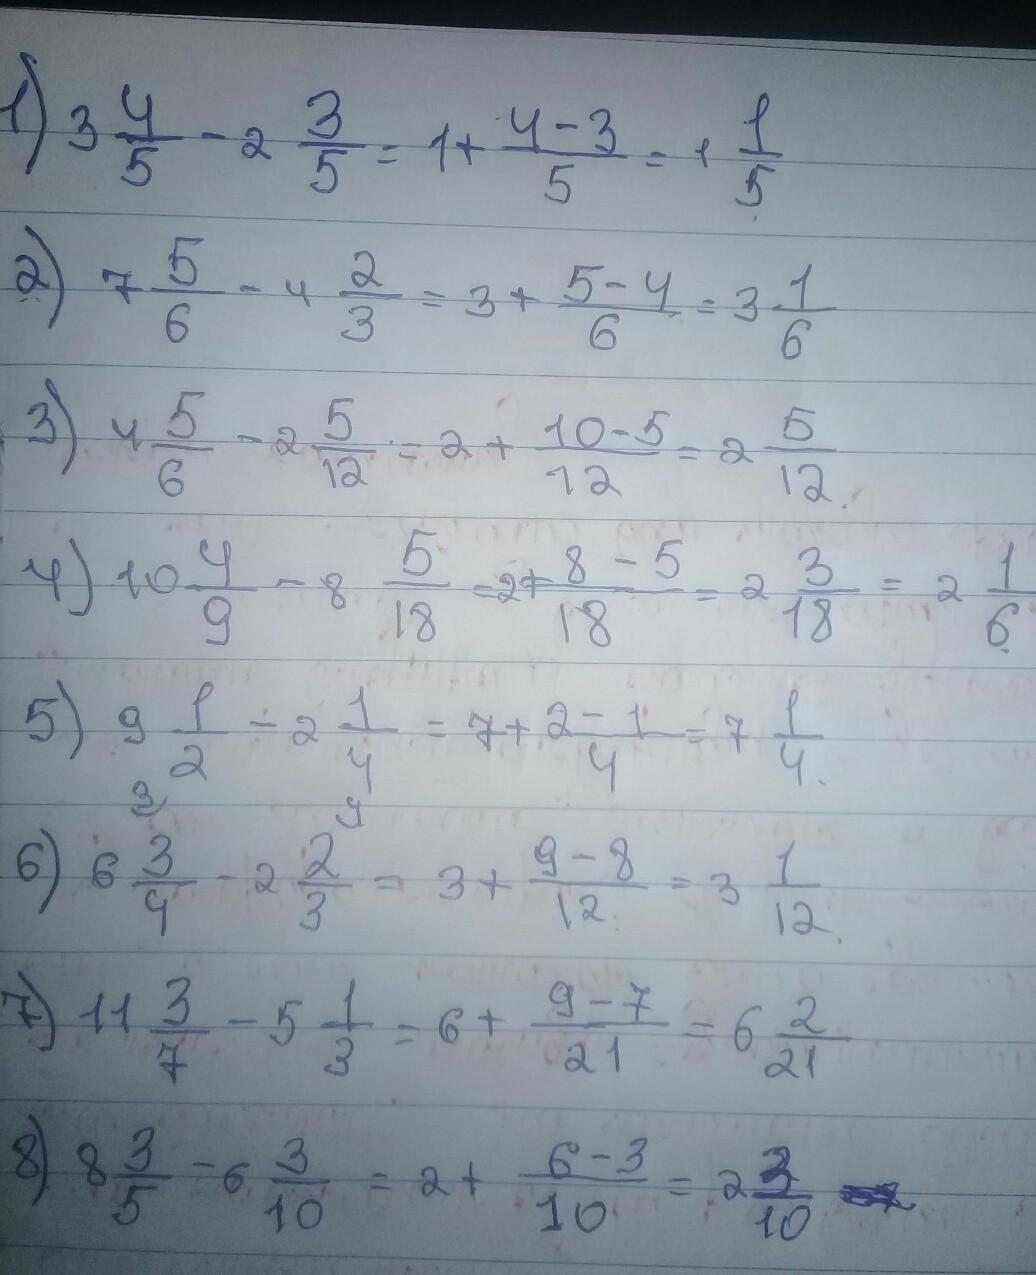 1) 3 4/5 - 2 3/5 = 1 + (4-3)/5 = 1 1/5
2) 7 5/6 - 4 2/3 = 3 + (5-4)/6 = 3 1/6
3) 4 5/6 - 2 5/12 = 2 + (10-5)/12 = 2 5/12
4) 10 4/9 - 8 5/18 = 2 + (8-5)/18 = 2 3/18 = 2 1/6
5) 9 1/2 - 2 1/4 = 7 + (2-1)/4 = 7 1/4
3 4
6) 6 3/4 - 2 2/3 = 3 + (9-8)/12 = 3 1/12
7) 11 3/7 - 5 1/3 = 6 + (9-7)/21 = 6 2/21
8) 8 3/5 - 6 3/10 = 2 + (6-3)/10 = 2 3/10